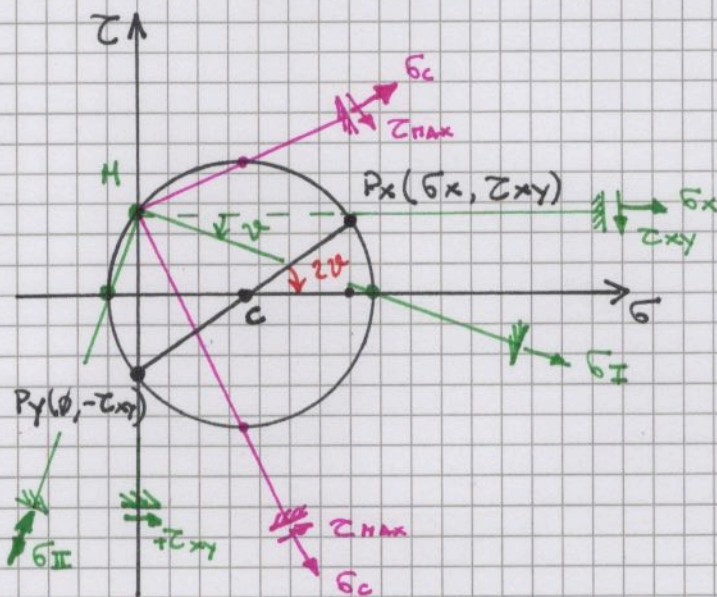 τ
σc
τMAX
M
Px(σx, τxy)
σx
τxy
ϑ
2ϑ
C
σ
σI
Py(ϕ,-τxy)
+τxy
σII
τMAX
σc